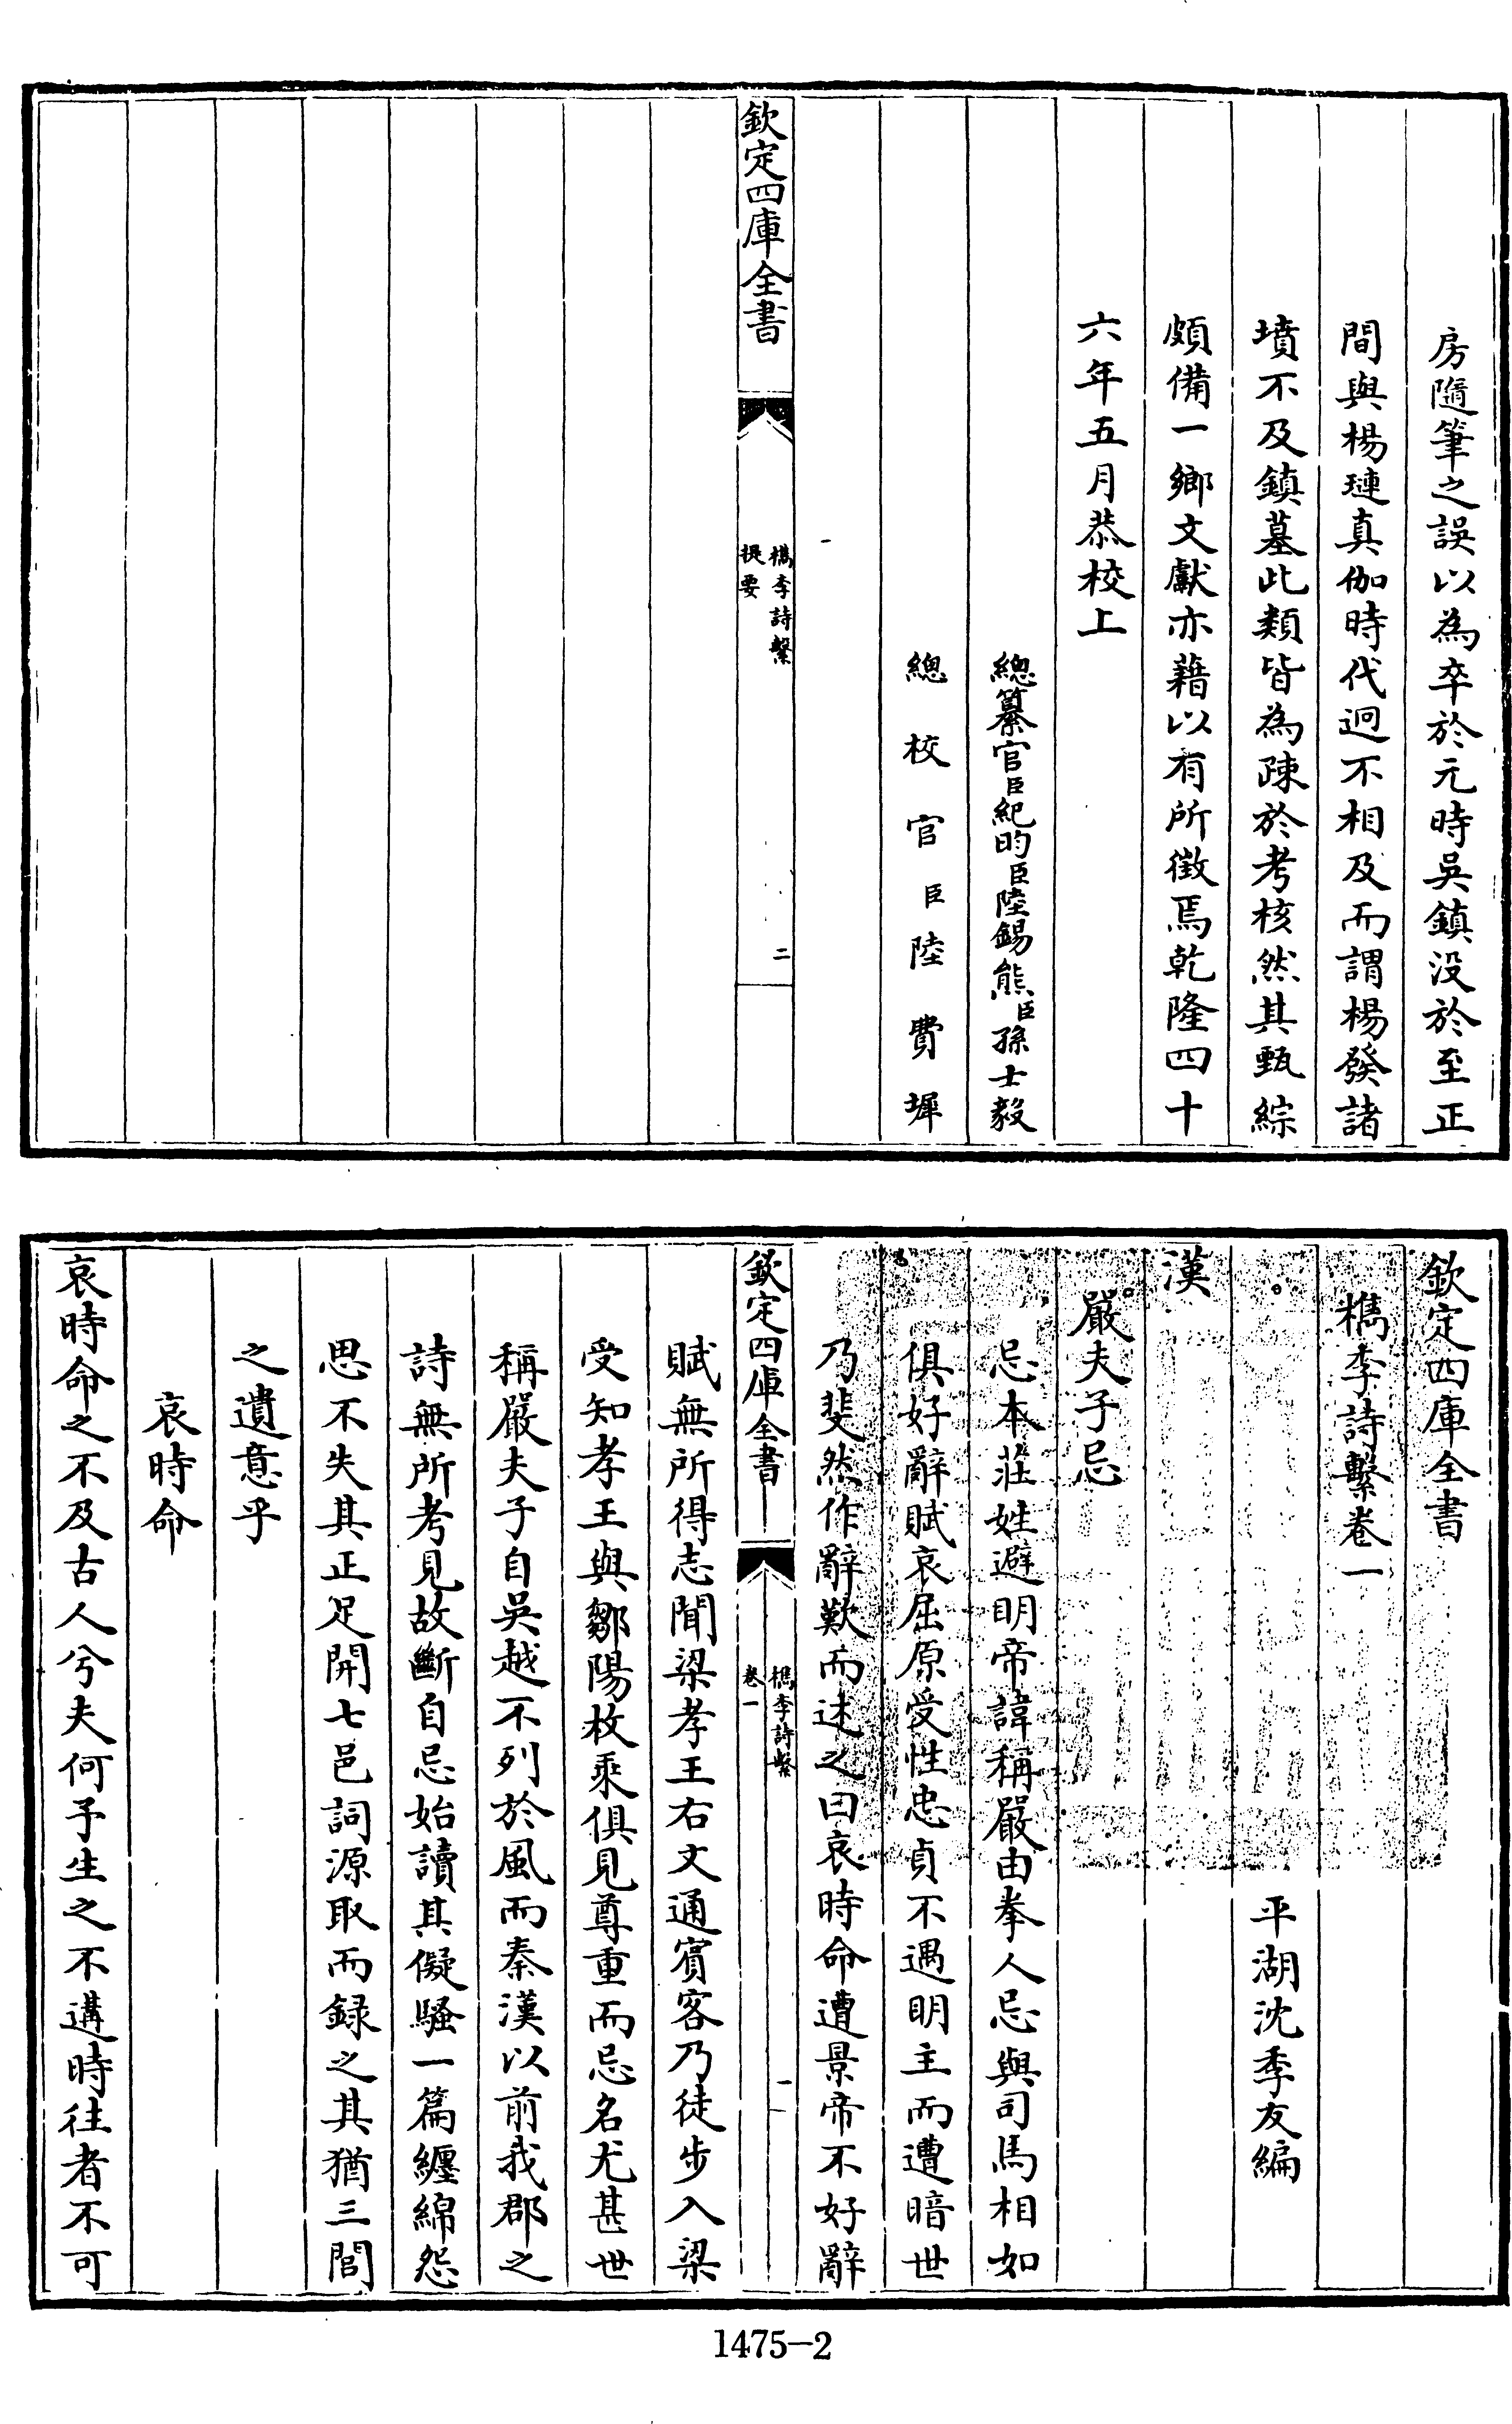 房隨筆之誤以為卒於元時吳鎮没於至正
間與楊璉真伽時代迥不相及而謂楊發諸
墳不及鎮墓此類皆為踈於考核然其甄綜
頗備一鄉文獻亦藉以有所徵焉乾隆四十
六年五月恭校上
總纂官臣紀昀臣陸錫熊臣孫士毅
總校官臣陸費墀
欽定四庫全書
檇李詩繫
提要
二
欽定四庫全書
檇李詩繫卷一
平湖沈季友編
漢
嚴夫子忌
忌本莊姓避明帝諱稱嚴由拳人忌與司馬相如
俱好辭賦哀屈原受性忠貞不遇明主而遭暗世
乃斐然作辭歎而述之曰哀時命遭景帝不好辭
欽定四庫全書
檇李詩繫
卷一
一
賦無所得志聞梁孝王右文通賓客乃徒步入梁
受知孝王與鄒陽枚乘俱見尊重而忌名尤甚世
稱嚴夫子自吳越不列於風而秦漢以前我郡之
詩無所考見故斷自忌始讀其儗騷一篇纏綿怨
思不失其正足開七邑詞源取而録之其猶三閭
之遺意乎
哀時命
哀時命之不及古人兮夫何予生之不遘時往者不可
1475-2